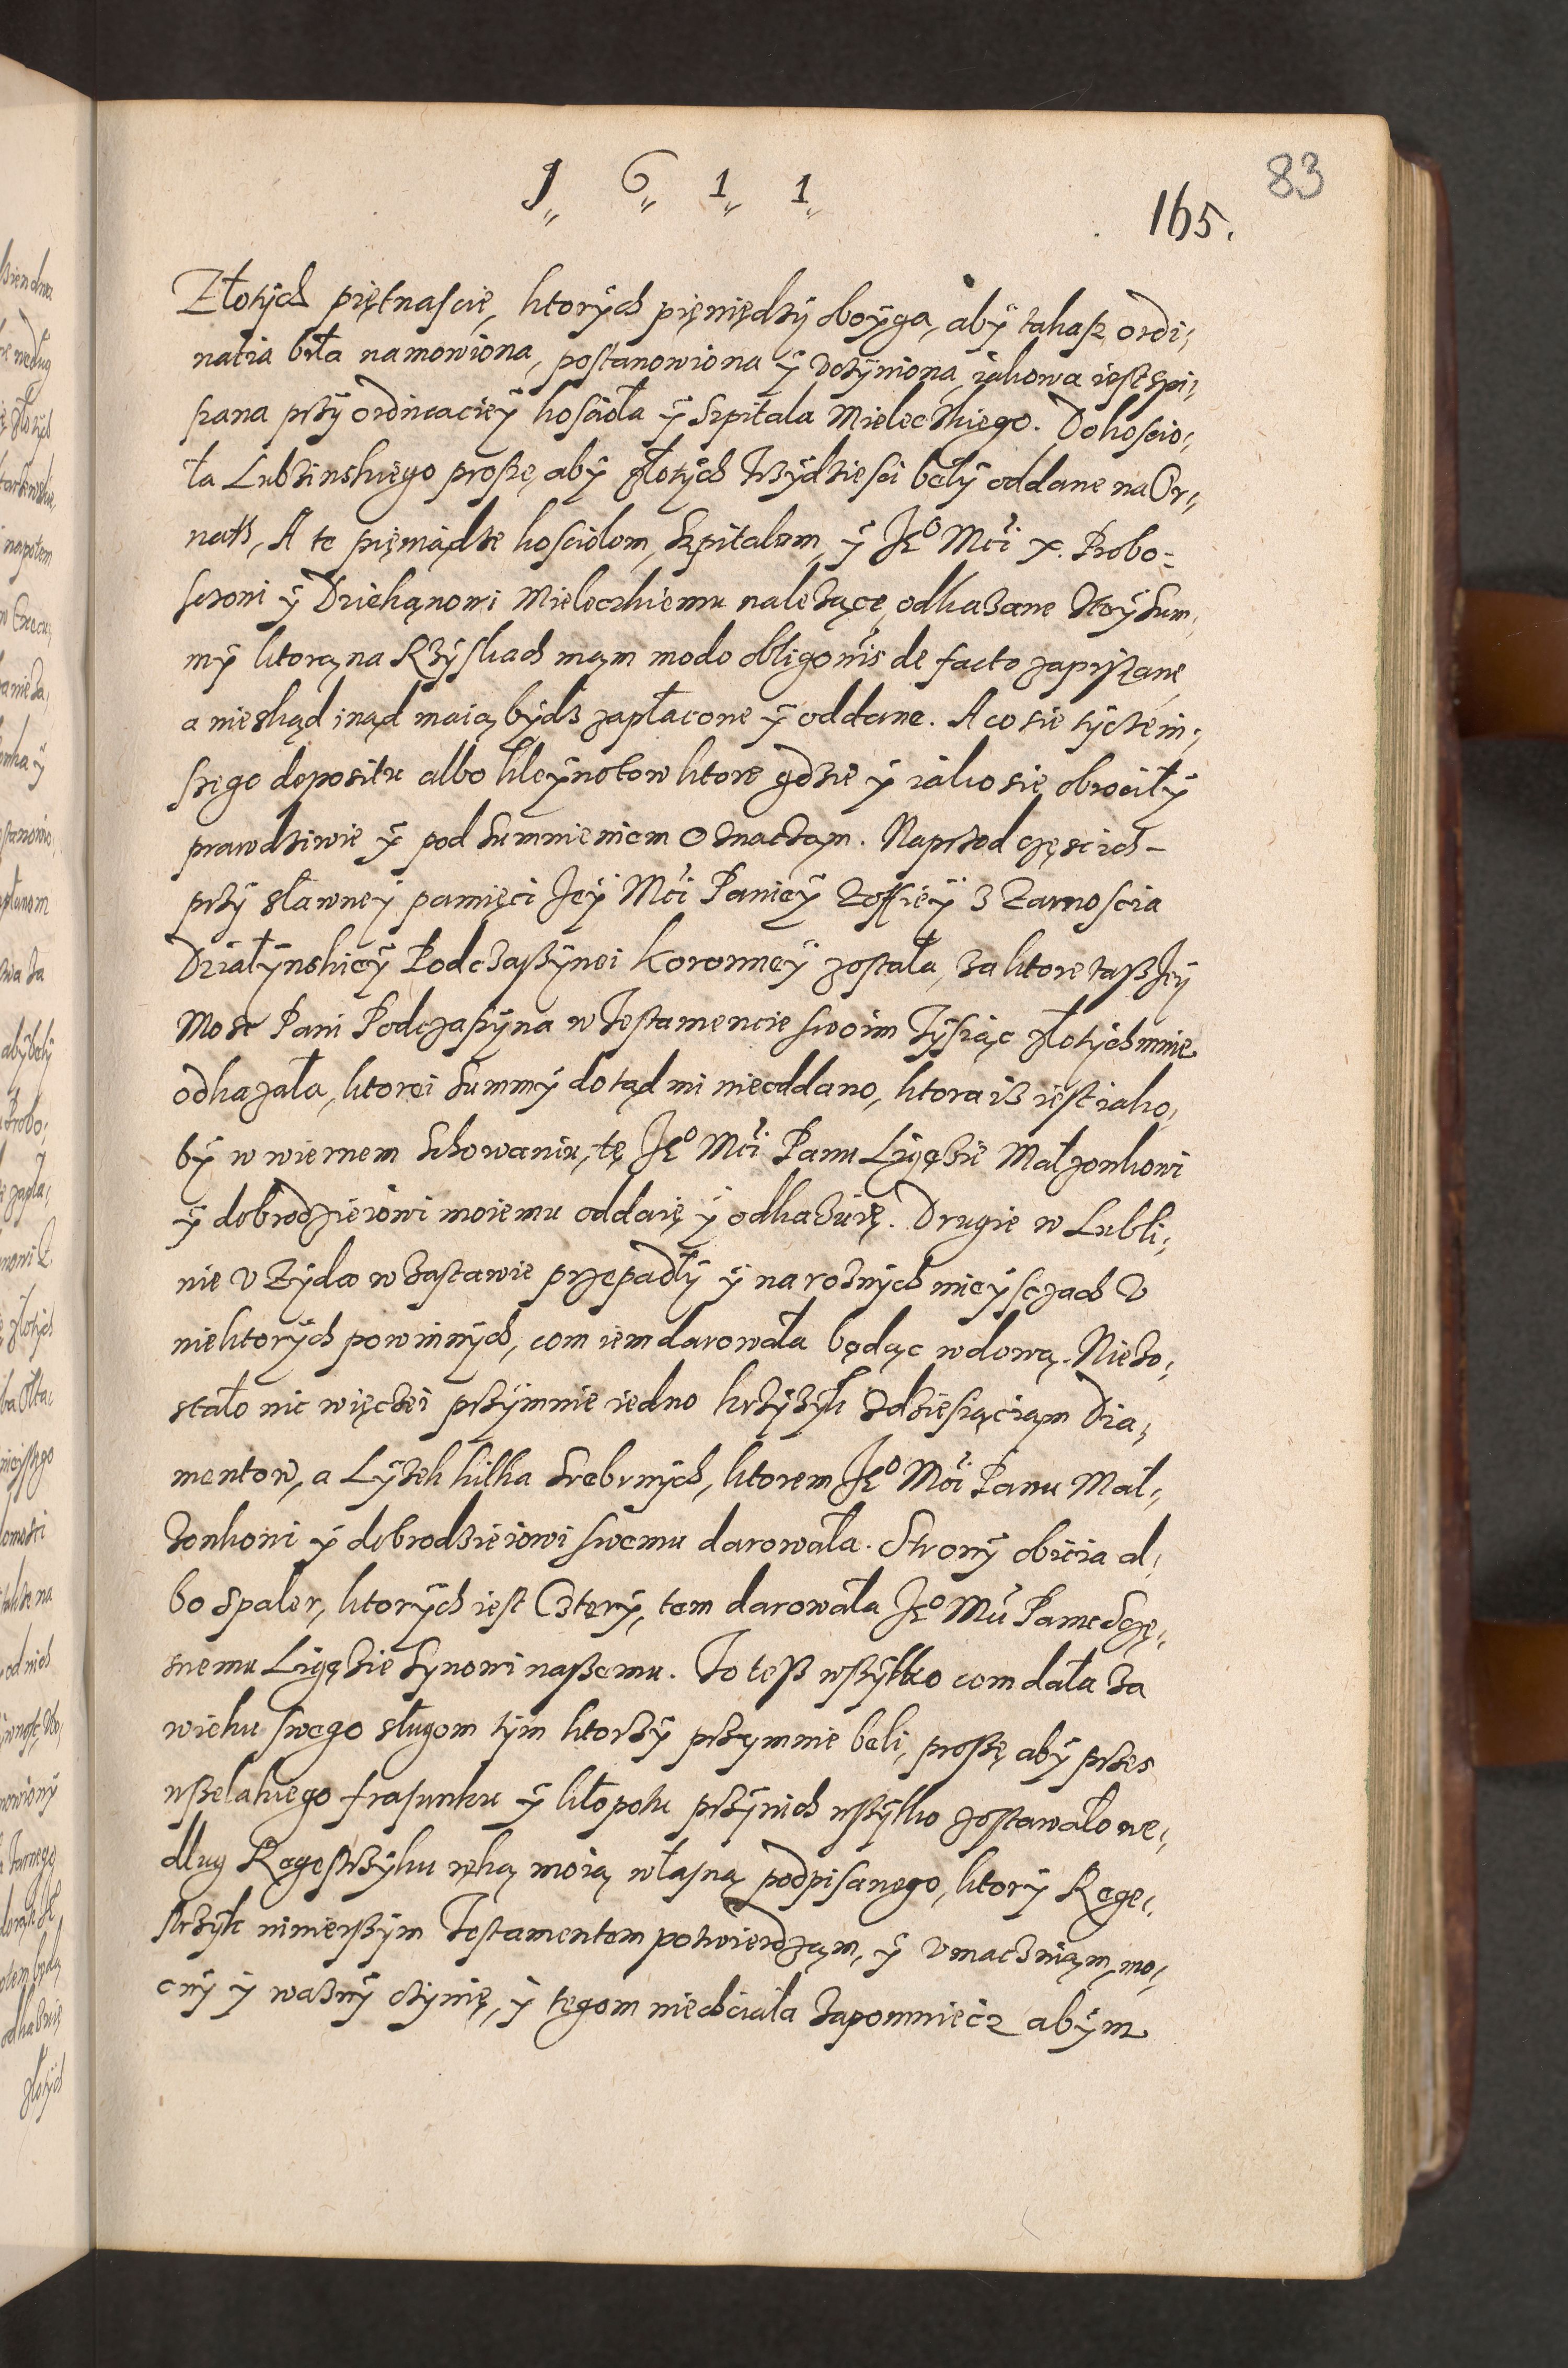 1„ 6„ 1„ 1„
83
165.
Złotÿch piętnascie, ktorÿch pięniędzÿ oboÿga, abÿ takasz ordi,
natia była namowiona, postanowiona ÿ vczÿniona iakowa iest spi,
szana przÿ ordinaciеÿ kosciоła ÿ Szpitala Mielecżkięgo. Do koscio,
ła Lubzinskięgo proszę abÿ złotÿch trzÿdziesci bełÿ oddane na Or,
nath, A te pięniądze kosciolom, Szpitalom, ÿ Jego Mci x. Probo-
sczoni ÿ Dziekąnowi Mieleczkiemu należącę, odkazane z teÿ Sum,
mÿ ktorą na Rzÿskach mąm modo obligorÿs de facto zapiszane
a nieskąd inąd maią bÿdz zapłacone ÿ oddane. A co sie tÿcze in,
szego depositu albo kleÿnotow ktore gdzie ÿ iako się obrociłÿ
prawdziwie ÿ pod Sumnieniem oznacząm. Naprzod część ich-
przÿ sławneÿ pamięci Jeÿ Mci Panieÿ Zoffieÿ z Zamoscia
Działÿnskieÿ Podczaszÿnei Koronneÿ została, za ktore tasz Jeÿ
Mosc Pani Podczaszÿna w Testamencie swoim Tÿsiąc złotÿch mnie
odkazała, ktorei Summÿ dotąd mi nie oddano, ktora isz iest iako,
bÿ w wiernem schowaniu, tę Jego Mci Panu Ligęzie Małzonkowi
ÿ dobrodzieiowi moiemu oddaię ÿ odkazuię. Drugie w Lubli,
nie v Zÿdow w zastawie przepadłÿ ÿ na roznÿch mieÿsczach v
niektorÿch powinnÿch, com iem darowała będąc wdową. Niezo,
stało nic więczei przÿ mnie iedno krzÿzÿk z dziesiąciąm Dia,
mentow, a Lÿzek kilka srebrnÿch, ktorem Jego Mci Panu Mał,
zonkowi ÿ dobrodzieiowi swemu darowała. Stronÿ obicia al,
bo Spaler, ktorÿch iest Czterÿ, tem darowała Jego Mci Panu Sczę,
snemu Ligęzie Sÿnowi naszemu. To tesz wszÿtko com dała za
wieku swego sługom tÿm ktorzÿ przÿ mnie beli, proszę abÿ przes
wszelakiego frasunku ÿ kłopotu przÿ nich wszÿtko zostawało we,
dług Regestrzÿku ręką moią własną podpisanego, ktorÿ Rege,
strzÿk ninieszÿm Testamentem potwierdzam, ÿ vmacniąm, mo,
cnÿ ÿ waznÿ czÿnię, ÿ tęgom niechciała zapomniecz abÿm